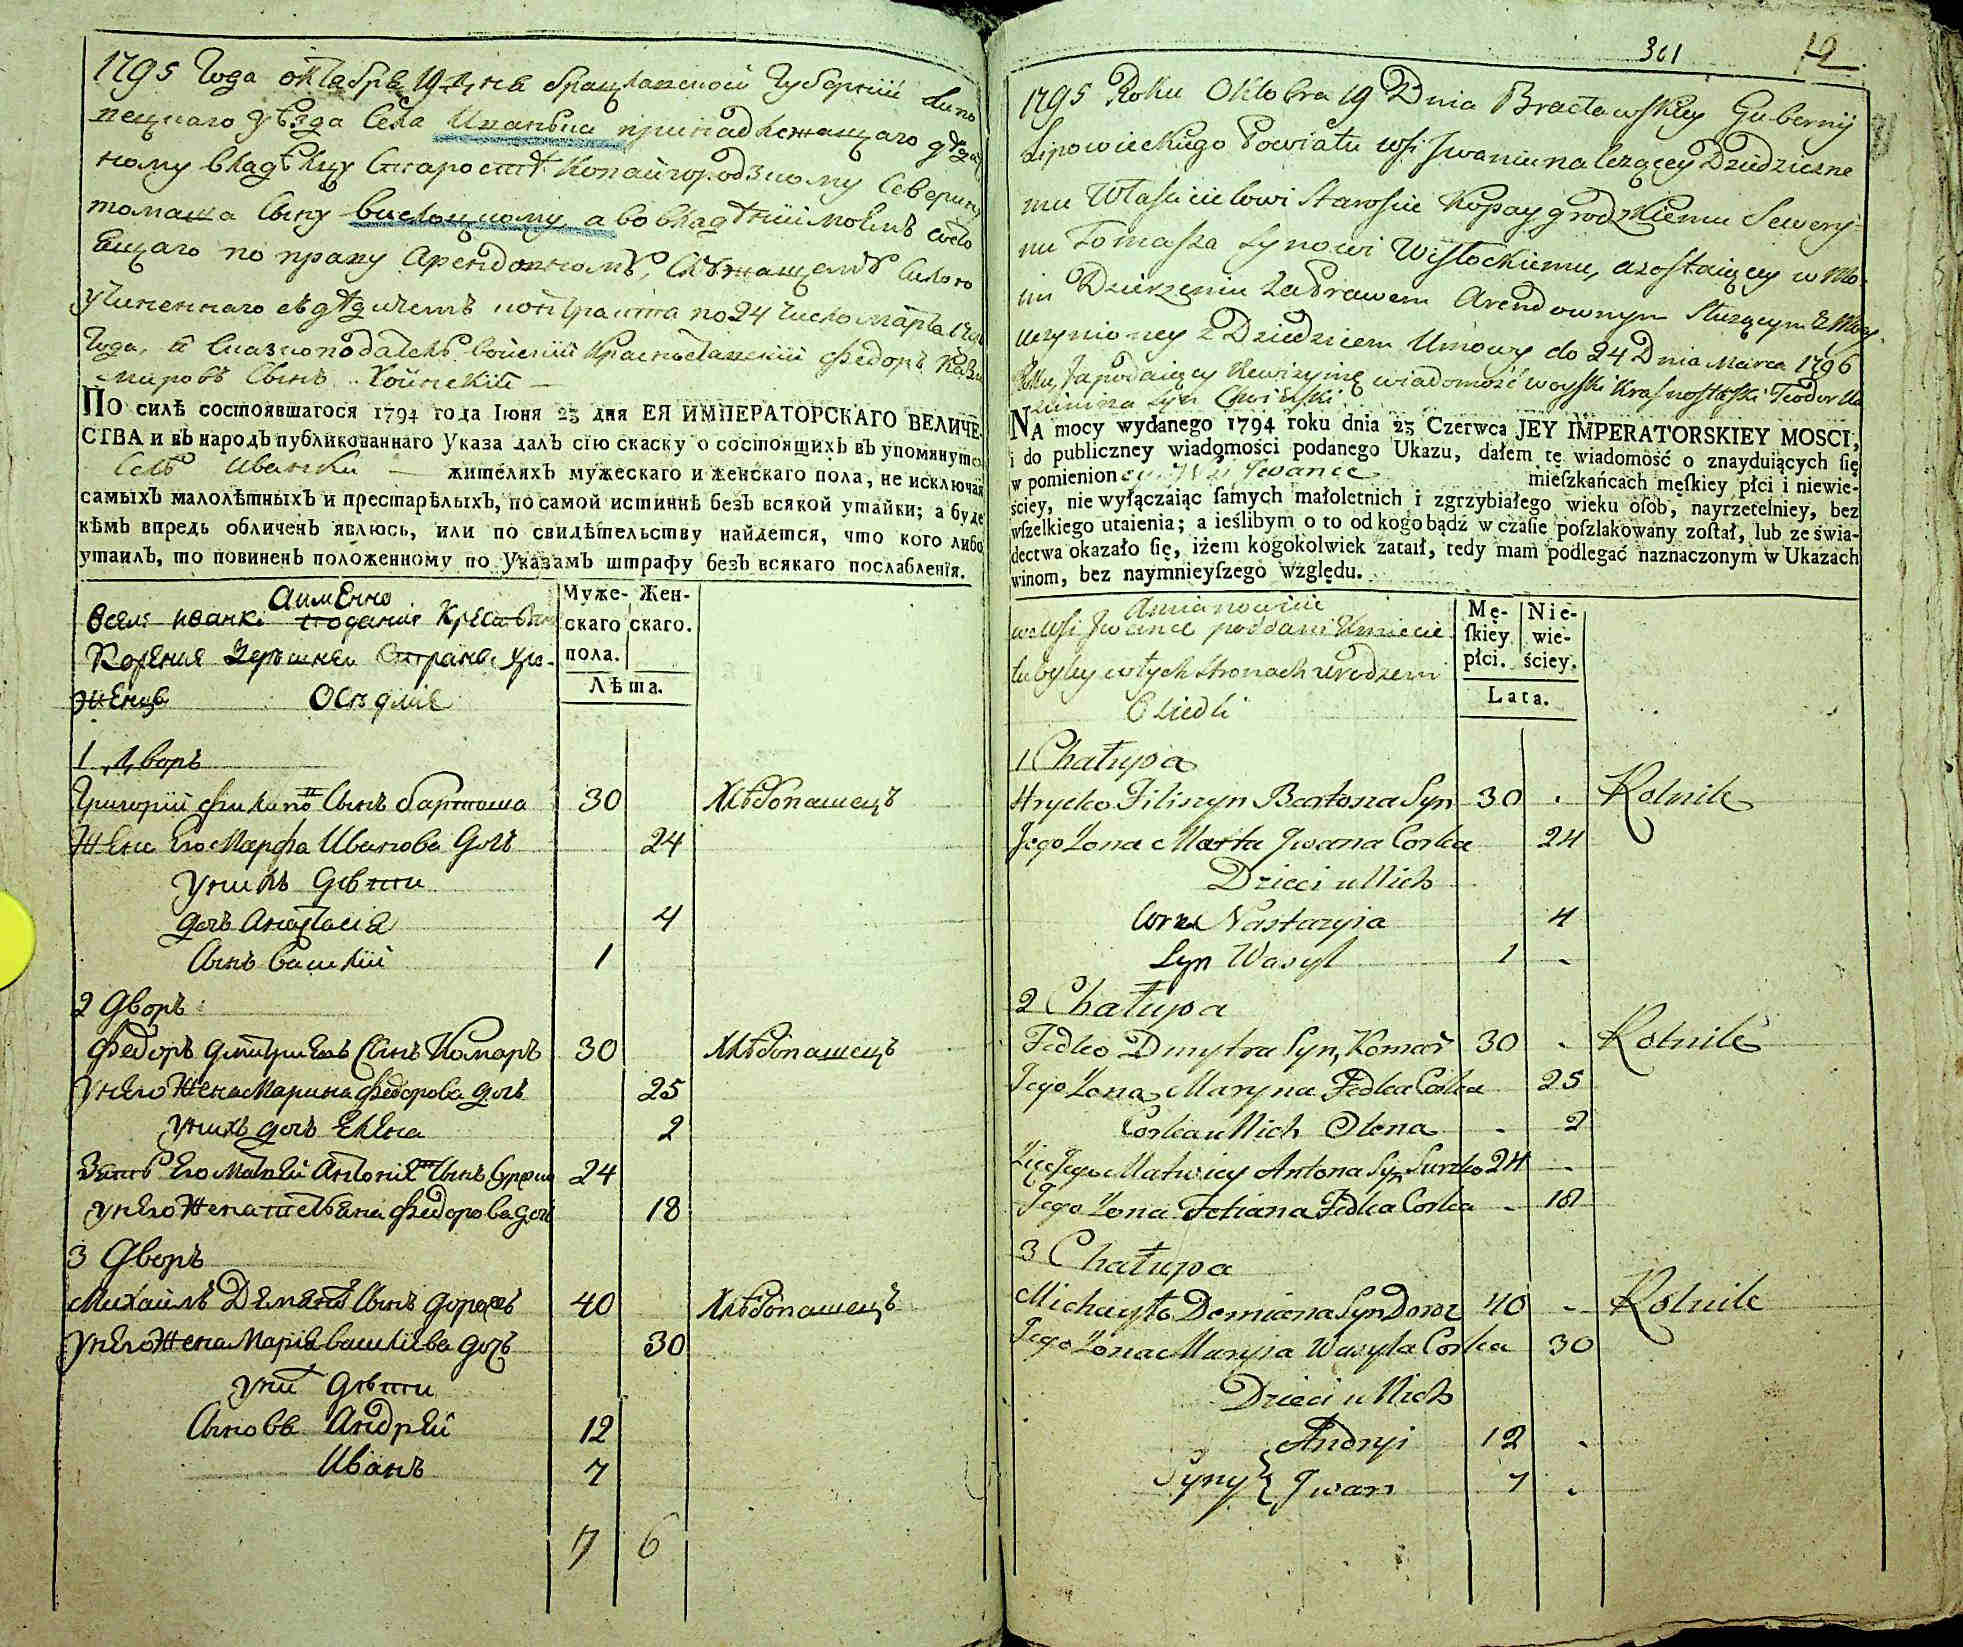 1795 Года октября 19 дня Брацлавской Губернии Липо
вецкаго уѣзда Села Иваньки принадлежащаго дѣдич
ному владѣлцу Старостѣ Копайгородзкому Северину
томаша Сыну вислоцкому, а во владѣнии моемъ состо
ящаго по праву Арендовномъ, Служащемъ Силою
учиненнаго съ дѣдичемъ контракта по 24 число марта 1796
Года, я Сказкоподатель войский Краснославский Федоръ
Сынъ Хоинский
ПО силѣ состоявшагося 1794 года Іюня 23 дня ЕЯ ИМПЕРАТОРСКАГО ВЕЛИЧЕ-
СТВА и въ народъ публикованнаго Указа далъ сію скаску о состоящихъ въ упомянутом
Селѣ Иваньки жителяхъ мужескаго и женскаго пола, не исключая
самыхъ малолѣтныхъ и престарѣлыхъ, по самой истиннѣ безъ всякой утайки; а буде
кѣмъ впредь обличенъ явлюсь, или по свидѣтельству найдется, что кого либо
утаилъ, то повиненъ положенному по Указамъ штрафу безъ всякаго послабленія.
Аимѣнно
Всели иванки поданіе Креставане
Кореніе Здешней Стране уро-
женцы Оседліе
Муже-
скаго
пола.
Жен-
скаго.
Лѣта.
1 Дворъ
Григорій филипо Сынъ бартоша 30 Хлѣбопашецъ
Жена Его Марфа Иванова дочь 24
У нихъ дѣти
дочь Анастасія 4
Сынъ василій 1
2 Дворъ
Федоръ дмитриевъ Сынъ Комаръ 30 Хлѣбопашецъ
У него Жена Марина федорова дочь 25
У нихъ дочь Елена 2
Зять Его Матвей Антоніе Сынъ 24
У него Жена татьяна федорова дочь 18
3 Дворъ
Михаилъ Демянъ Сынъ 40 Хлѣбопашецъ
У него Жена Маріа василіева дочь 30
У них дѣти
Сынове Андрей 12
Иванъ 7
7 6
301 12
1795 Roku Oktobra 19 Dnia Bracławskiey Gubernij
Lipowieckiego Powiatu wsi Jwanki należącey Dziedziczne
mu Właścicielowi Staroscie Kopaygrodzkiemu Sewery-
nu Tomasza Synowi Wisłockiemu, a zostaiącey w Mo-
im Dzierżeniu za Prawem Arendownym Służącym z Mocy
uczynioney z Dziedzicem Umowy do 24 Dnia Marca 1796
Roku, Ja podaiący Rewizyinę wiadomość woyski Krasnosławski Teodor Ka
zimirza syn Choinski
NA mocy wydanego 1794 roku dnia 23 Czerwca JEY IMPERATORSKIEY MOSCI,
i do publiczney wiadomości podanego Ukazu, dałem tę wiadomość o znayduiących ſię
w pomienioney Wsi Jwance mieſzkańcach męſkiey płci i niewie-
ściey, nie wyłączaiąc ſamych małoletnich i zgrzybiałego wieku oſób, nayrzetelniey, bez
wſzelkiego utaienia; a ieślibym o to od kogo bądź w czaſie poſzlakowany zoſtał, lub ze świa-
dectwa okazało ſię, iżem kogokolwiek zataił, tedy mam podlegać naznaczonym w Ukazach
winom, bez naymnieyſzego względu.
Amianowicie
we Wsi Jwance poddani Kmiecie
tubylcy w tych stronach urodzeni
Osiedli
Mę-
ſkiey
płci.
Nie-
wie-
ściey.
Lata.
1 Chałupa
Hrycko Filiszyn Bartosza Syn 30 Rolnik
Jego Żona Marta Jwana Corka 24
Dzieci u Nich
Corka Nastazyia 4
Syn Wasyl 1
2 Chałupa
Fedko Dmytra Syn Komar 30 Rolnik
Jego Żona Maryna Fedka Corka 25
Corka u Nich Olena 2
Zięć Jego Matwiey Antona Syn 24
Jego Żona Tetiana Fedka Corka 18
3 Chałupa
Michayło Demiana Syn 40 Rolnik
Jego Żona Maryia Wasyla Corka 30
Dzieci u Nich
Andryi 12
Syny Jwan 7